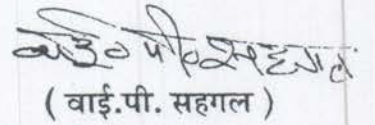 वाई० पी० सहगल
( वाई.पी. सहगल )